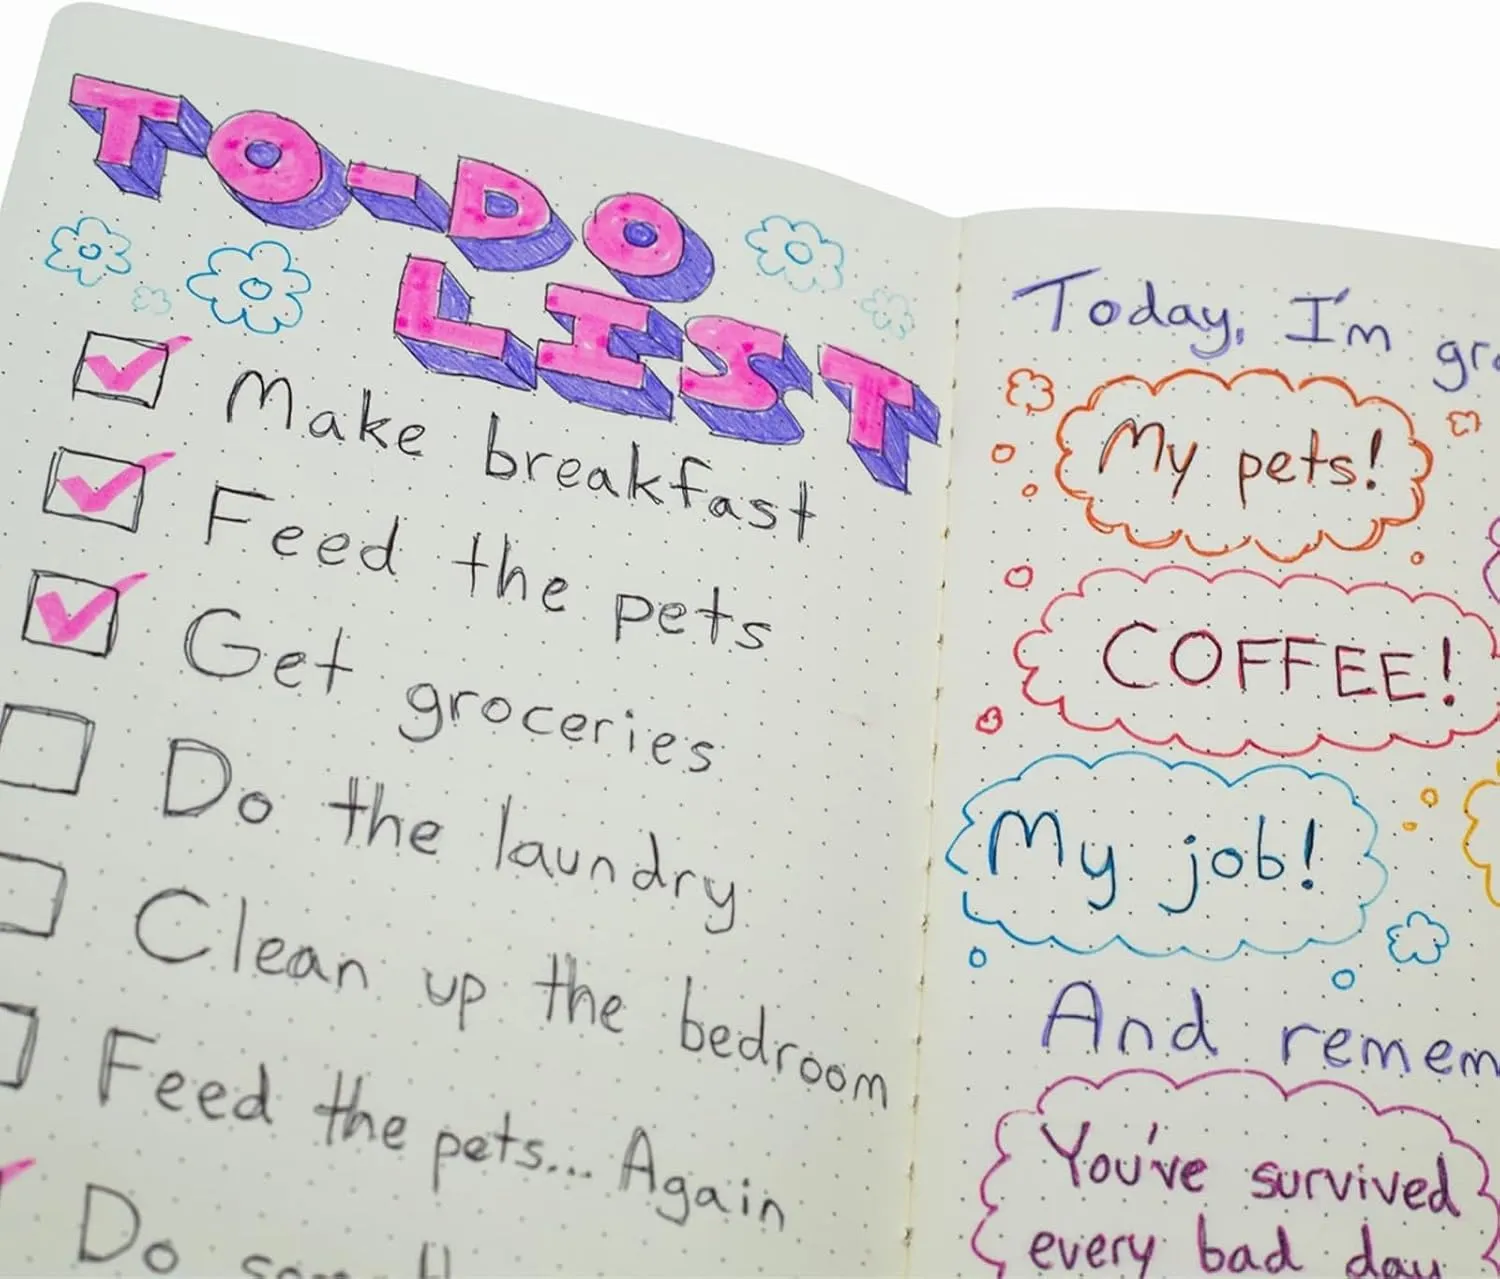 TO-DO
LIST
Make breakfast
Feed the pets
Get groceries
Do the laundry
Clean up the bedroom
Feed the pets... Again
Do
Today, I'm
My pets!
COFFEE!
My job!
And
You've survived
every bad day